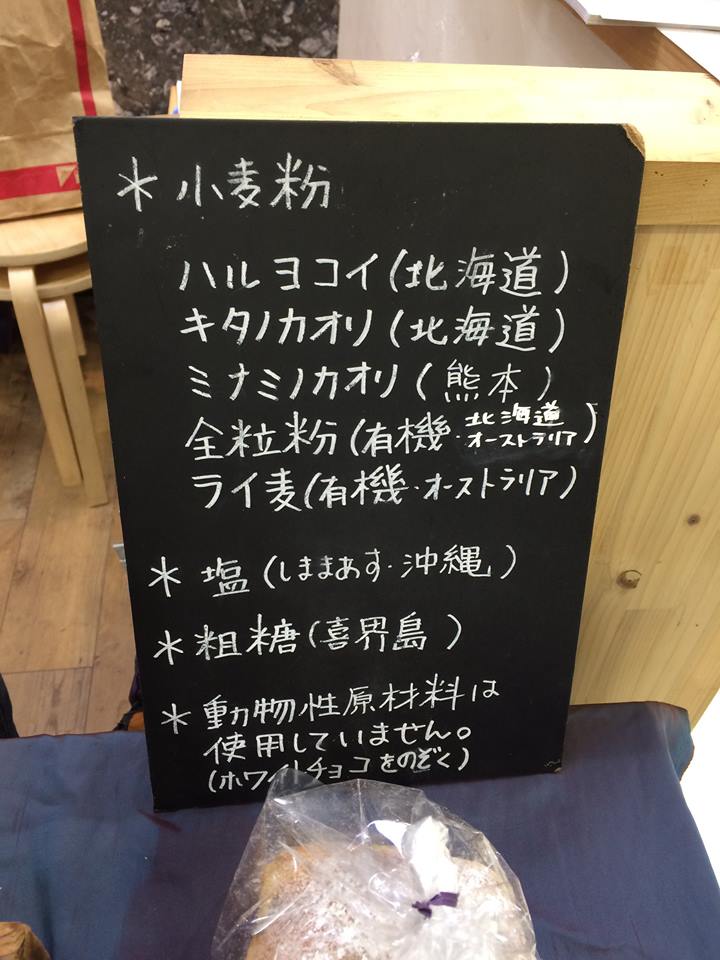 ＊小麦粉
ハルヨコイ(北海道)
キタノカオリ(北海道)
ミナミノカオリ(熊本)
全粒粉(有機・北海道
オーストラリア)
ライ麦(有機・オーストラリア)
＊塩(しままあす・沖縄)
＊粗糖(喜界島)
＊動物性原材料は
使用していません。
(ホワイトチョコをのぞく)